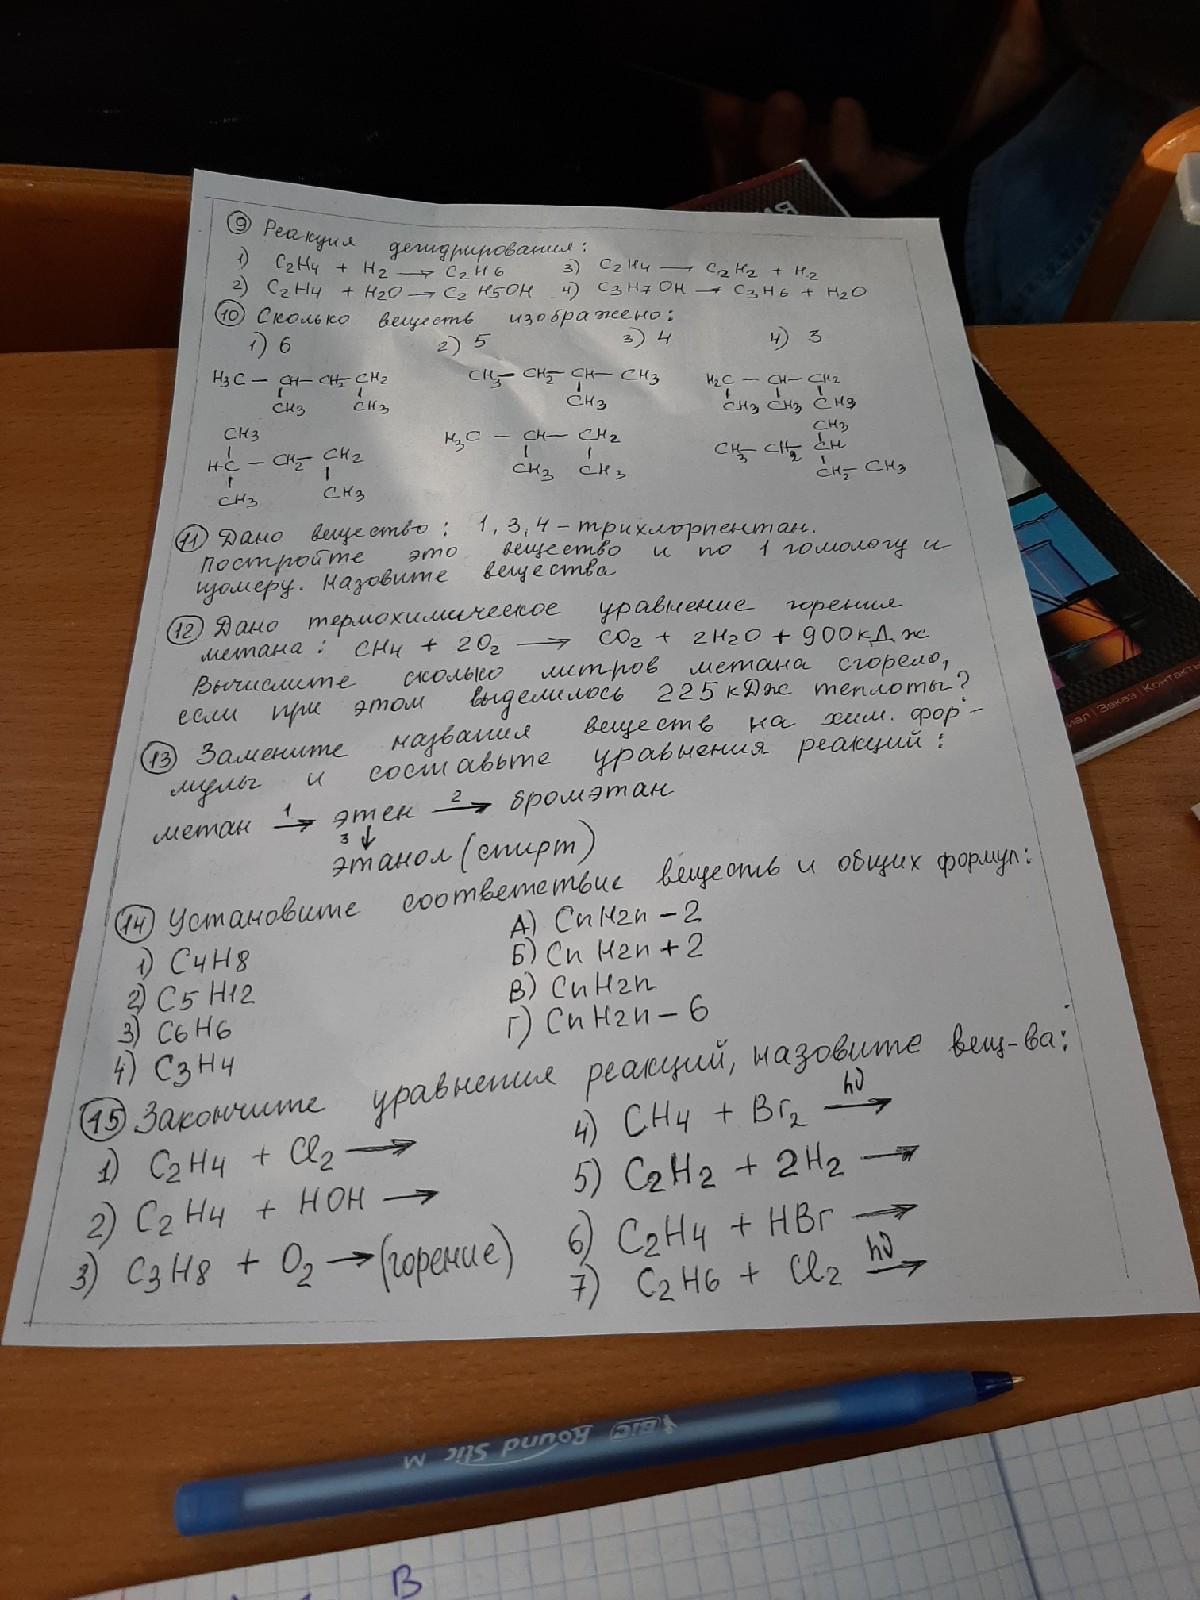 9 Реакция дегидрирования:
1) C2H4 + H2 → C2H6 3) C2H4 → C2H2 + H2
2) C2H4 + H2O → C2H5OH 4) C3H7OH → C3H6 + H2O
10 Сколько веществ изображено:
1) 6 2) 5 3) 4 4) 3
H3C — CH — CH2 — CH2 CH3 — CH2 — CH — CH3 H2C — CH — CH2
CH3 CH3 CH3 CH3 CH3 CH3
CH3 CH3
HC — CH2 — CH2 H3C — CH — CH2 CH3 — CH2 — CH
CH3 CH3 CH3 CH3 CH2 — CH3
11 Дано вещество: 1,3,4 – трихлорпентан.
Постройте это вещество и по 1 гомологу и
изомеру. Назовите вещества
12 Дано термохимическое уравнение горения
метана: CH4 + 2O2 → CO2 + 2H2O + 900кДж
Вычислите сколько литров метана сгорело,
если при этом выделилось 225 кДж теплоты?
13 Замените названия веществ на хим. фор-
мулы и составьте уравнения реакций:
метан 1→ этен 2→ бромэтан
3 ↓
этанол (спирт)
14 Установите соответствие веществ и общих формул:
1) C4H8 А) CnH2n – 2
2) C5H12 Б) CnH2n + 2
3) C6H6 В) CnH2n
4) C3H4 Г) CnH2n – 6
15 Закончите уравнения реакций, назовите вещ-ва:
1) C2H4 + Cl2 → 4) CH4 + Br2 hν→
2) C2H4 + HOH → 5) C2H2 + 2H2 →
3) C3H8 + O2 → (горение) 6) C2H4 + HBr →
7) C2H6 + Cl2 hν→
Заказ | Контакты
BIC Round Stic M
В